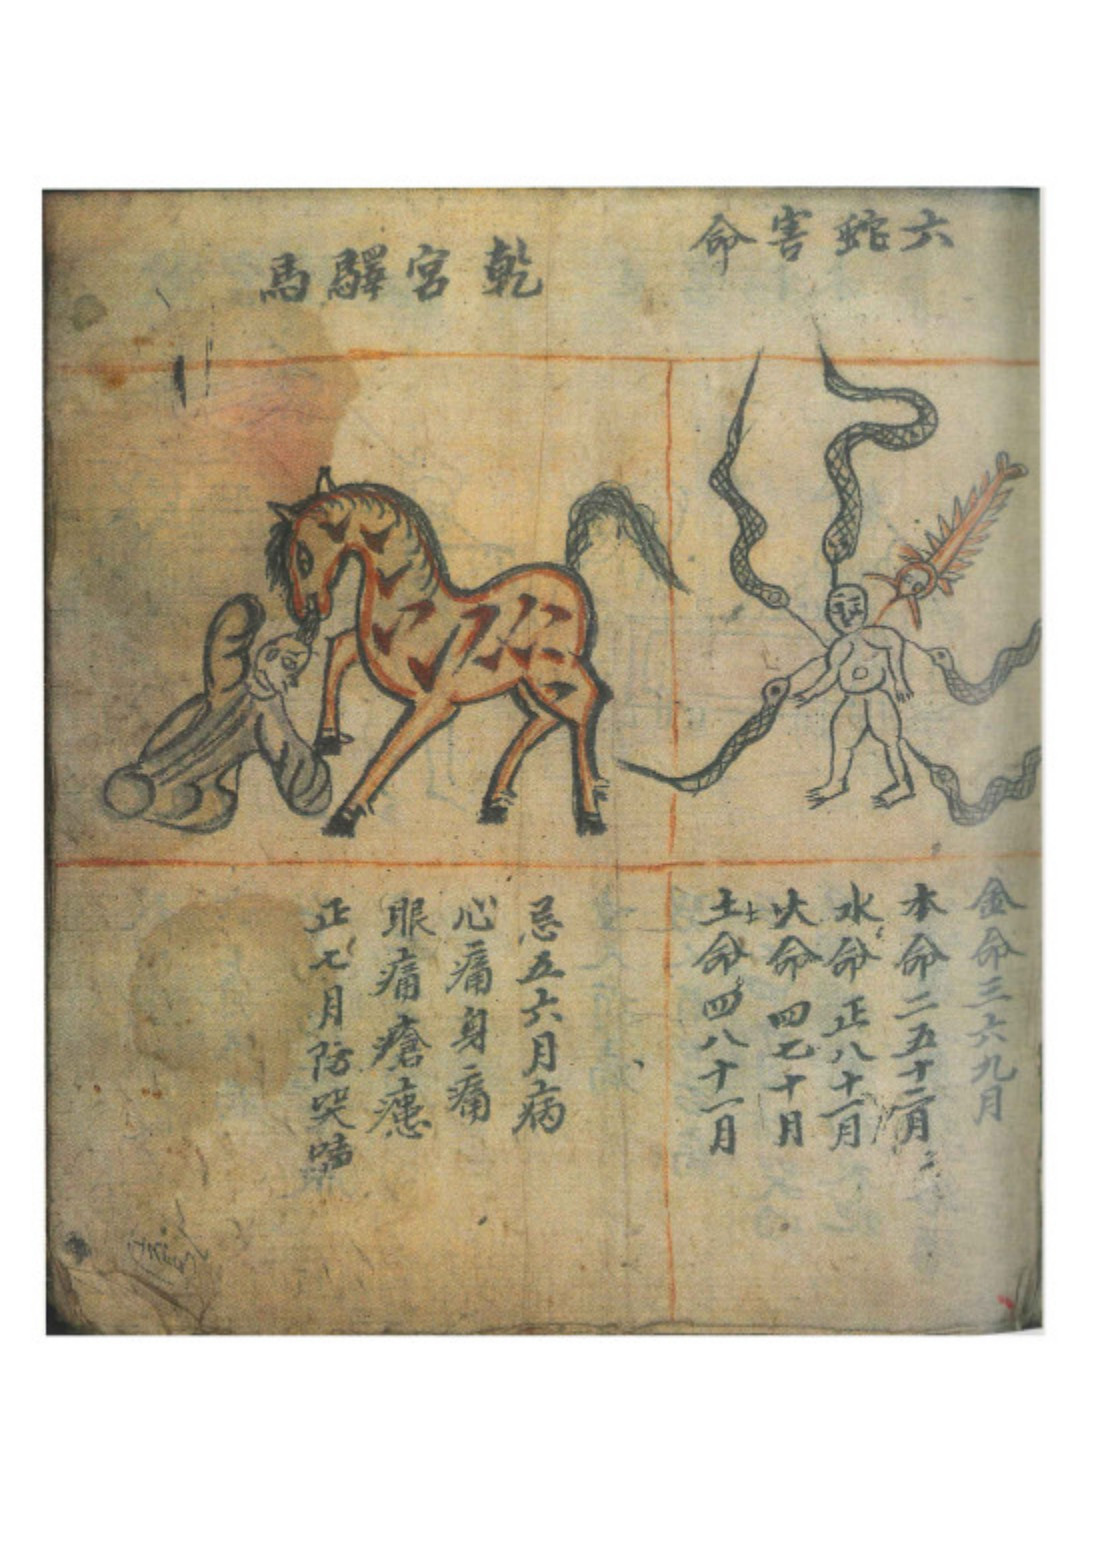 六蛇害命
金命三六九月
木命二五十二月
水命正八十一月
火命四七十月
土命四八十一月
乾宮驛馬
忌五六月病
心痛身痛
眼痛瘡患
正七月防哭啼